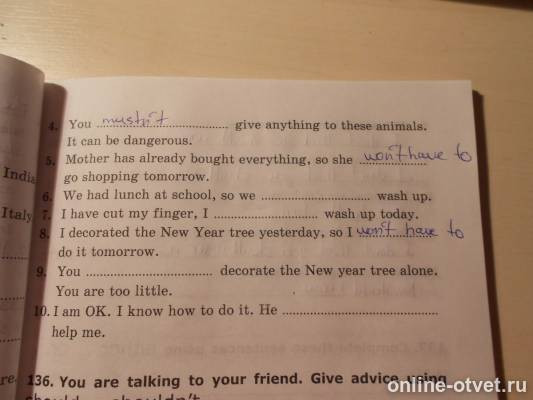 4. You mustn't give anything to these animals.
It can be dangerous.
5. Mother has already bought everything, so she won't have to
India
go shopping tomorrow.
6. We had lunch at school, so we .............................. wash up.
Italy
7. I have cut my finger, I .............................. wash up today.
8. I decorated the New Year tree yesterday, so I won't have to
do it tomorrow.
9. You .................................. decorate the New year tree alone.
You are too little.
10. I am OK. I know how to do it. He ..........................................
help me.
re.
136. You are talking to your friend. Give advice using
should shouldn't
online-otvet.ru